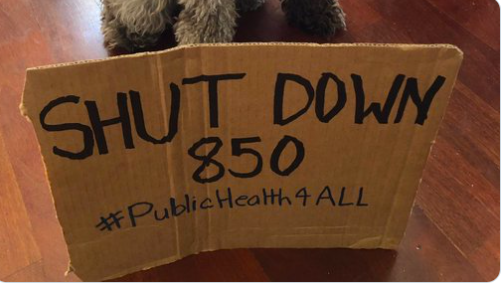 SHUT DOWN
850
#PublicHealth4ALL